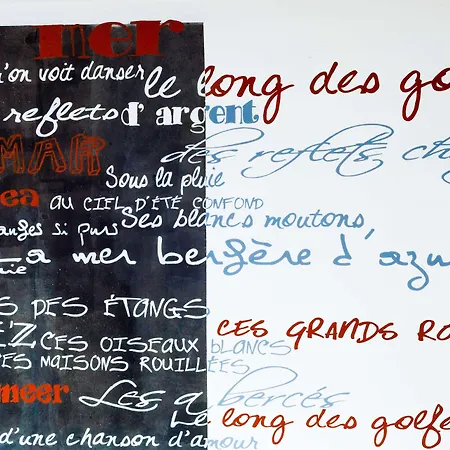 mer
u'on voit danser le long des go
reflets d'argent
MAR des reflets ch
Sous la pluie
ea AU CIEL D'ÉTÉ CONFOND
anges si purs Ses blancs moutons,
La mer bergère d'azu
uie
S DES ÉTANGS
EZ CES OISEAUX BLANCS CES GRANDS RO
CES MAISONS ROUILLÉES
meer Les a bercés
Le long des golfe
d'une chanson d'amour